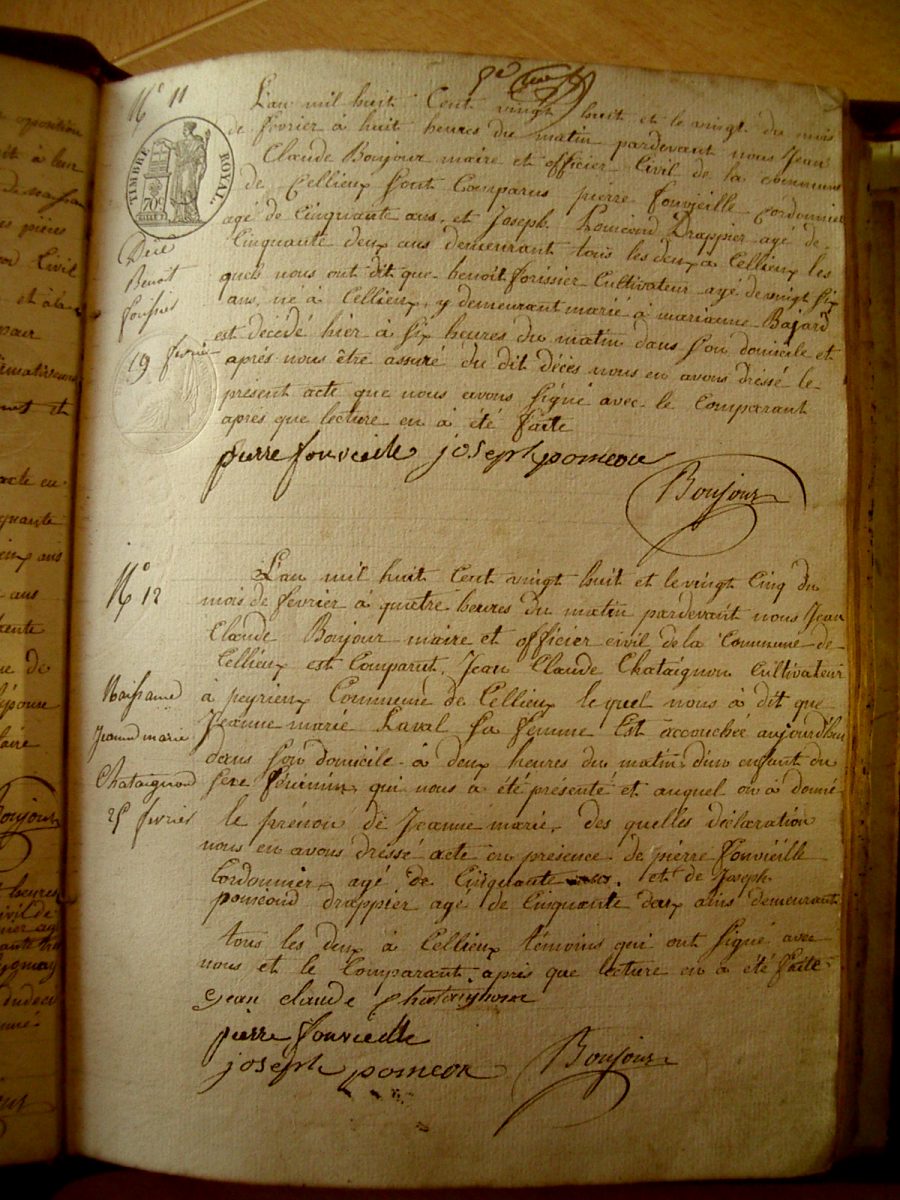 N° 11
TIMBRE ROYAL
L'an mil huit Cent vingt huit et le vingt du mois
de fevrier à huit heures du matin pardevant nous Jean
Claude Boujour maire et officier Civil de la commune
de Cellieux sont Comparus pierre fonvieille Cordonnier
agé de Cinquante ans, et Joseph Drappier agé de
Cinquante deux ans demeurant tous les deux a Cellieux les
quels nous ont dit que benoit forissier Cultivateur agé de vingt six
ans, né à Cellieux, y demeurant marié à marianne Bajard
est décédé hier à six heures du matin dans son domicile et
après nous être assuré du dit décès nous en avons dréssé le
présent acte que nous avons signé avec le Comparant
apres que lecture en à été faite
Benoit
19 fevrier
pierre fonvieille joseph pomeon
Boujour
N° 12
L'an mil huit Cent vingt huit et le vingt Cinq du
mois de fevrier à quatre heures du matin pardevant nous Jean
Claude Boujour maire et officier civil de la Commune de
Cellieux est Comparut Jean Claude Chataignon Cultivateur
à peyrieux Commune de Cellieux le quel nous à dit que
Jeanne marie Laval sa femme Est accouchée aujourd'hui
dans son domicile à deux heures du matin d'un enfant du
sexe féminin qui nous a été présenté et auquel on à donné
le prénon de Jeanne marie, des quelles déclaration
nous en avons dressé acte en présence de pierre fonvieille
Cordonnier agé de Cinquante ans. et de Joseph
pomeond drappier age de Cinquante deux ans demeurant
tous les deux à Cellieux témoins qui ont signé avec
nous et le Comparant après que lecture en a été faite
Naissance
Jeanne marie
Chataignon
25 fevrier
jean claude chataignon
pierre fonvieille
joseph pomeon
Boujour